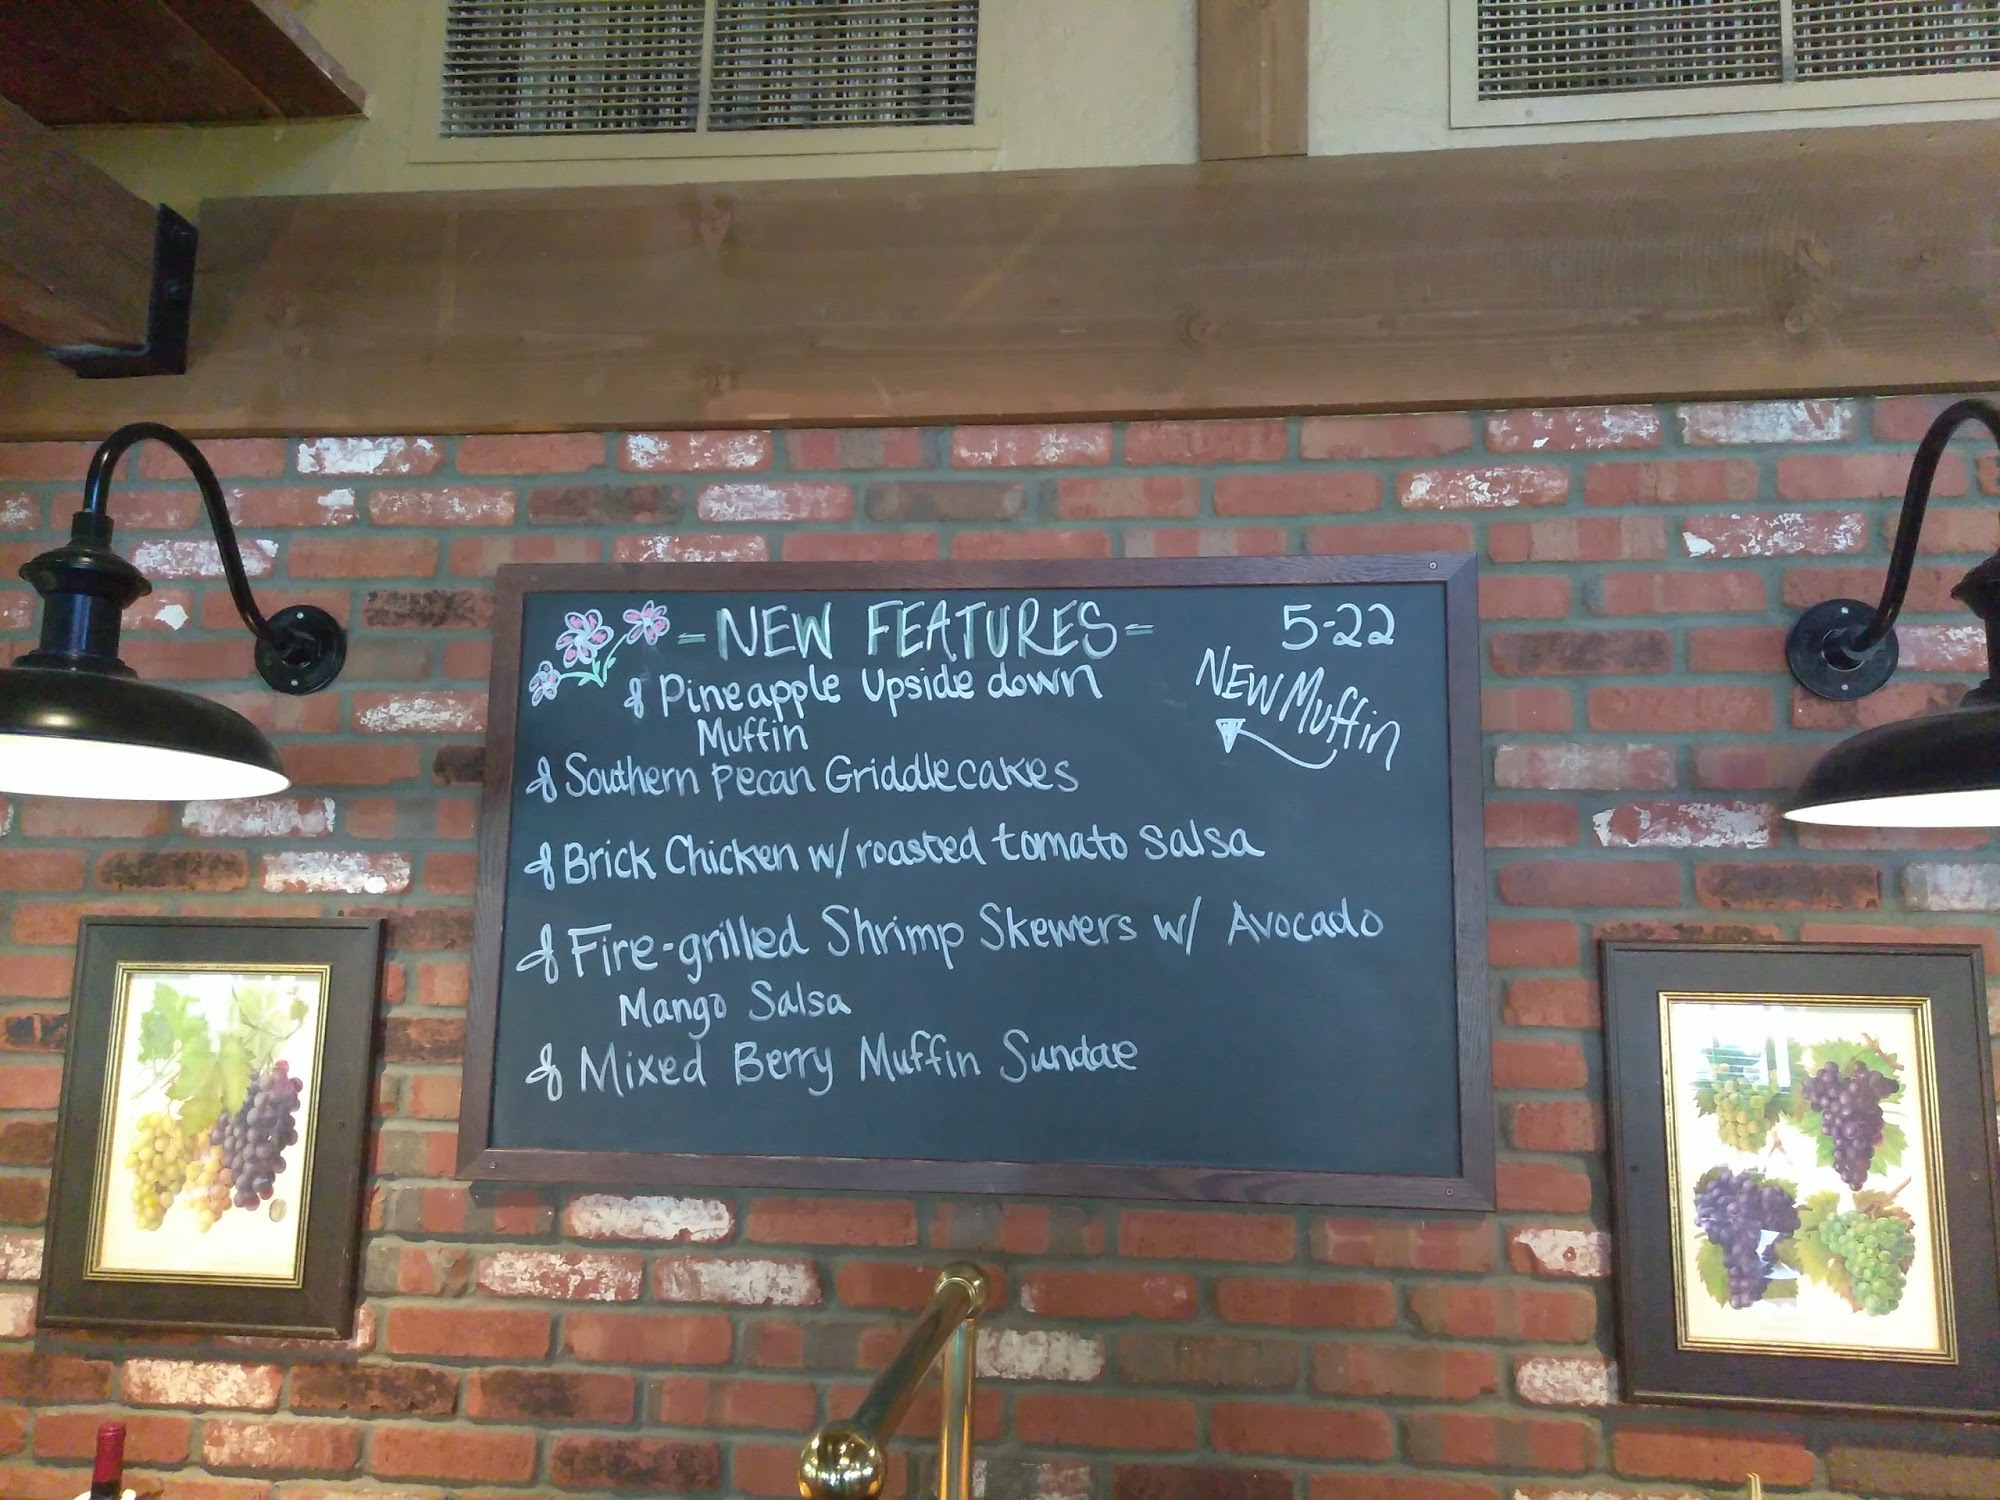 - NEW FEATURES -
5-22
Pineapple Upside down
Muffin
NEW Muffin
Southern Pecan Griddlecakes
Brick Chicken w/ roasted tomato salsa
Fire-grilled Shrimp Skewers w/ Avocado
Mango Salsa
Mixed Berry Muffin Sundae